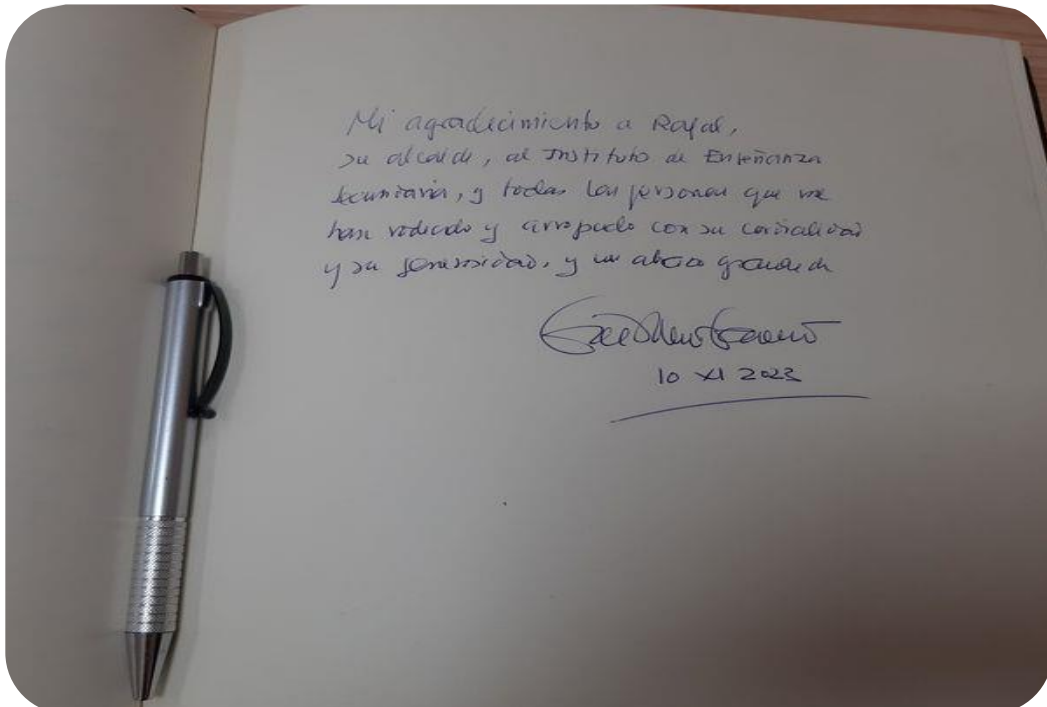 Mi agradecimiento a Rafal,
su alcalde, al Instituto de Enseñanza
Secundaria, y todas las personas que me
han rodeado y arropado con su cordialidad
y su generosidad, y un abrazo grande de
10 XI 2023